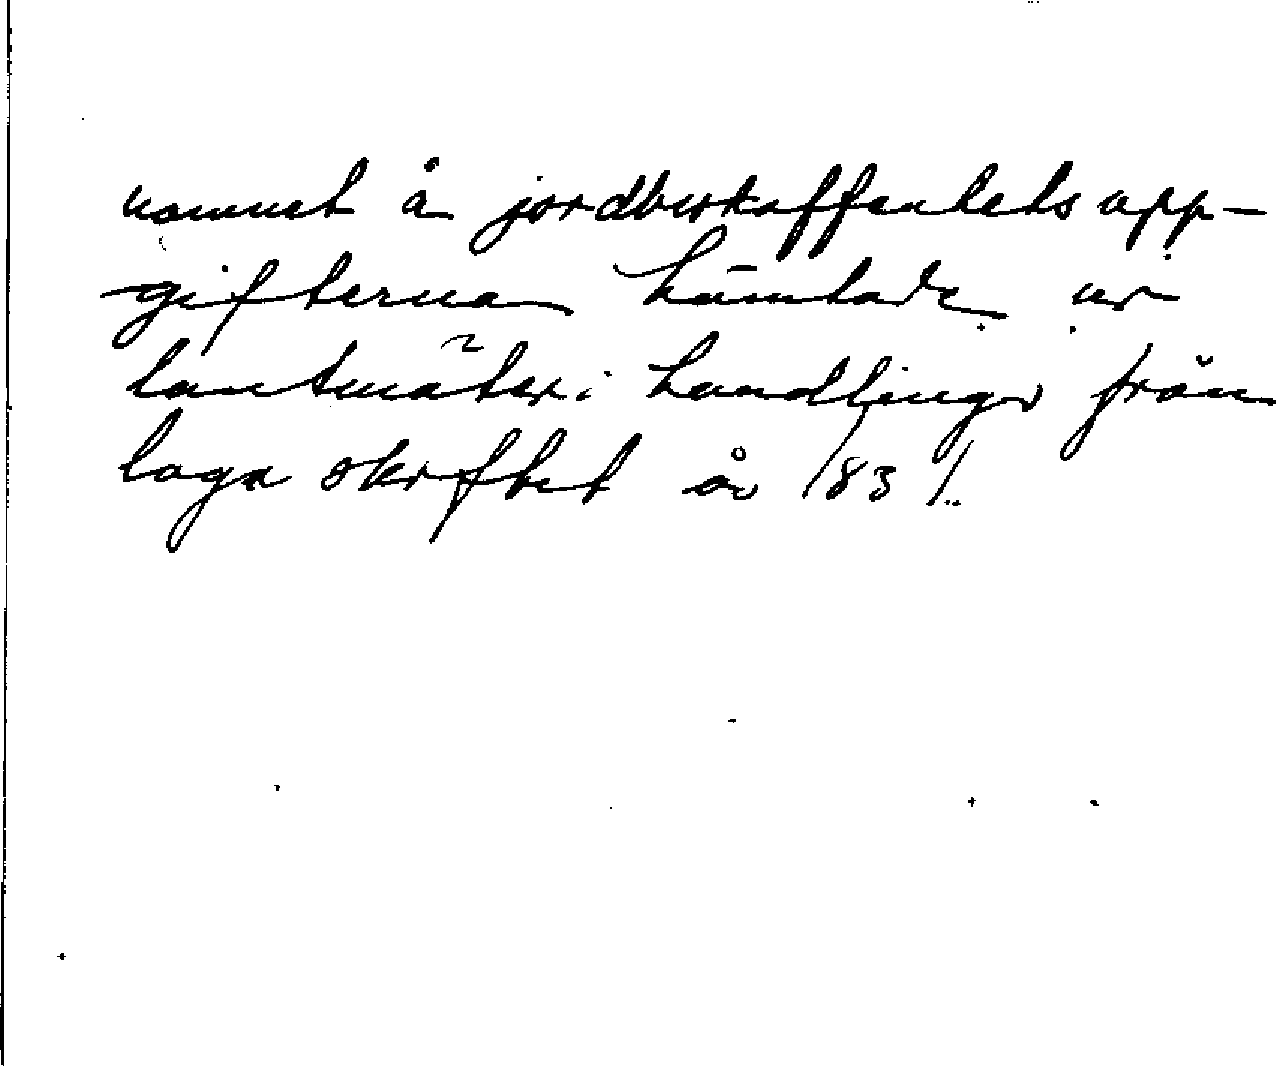 namnet å jordbeskaffenhetsupp-
gifterna hämtade ur
lantmäteri handlingar från
laga skiftet år 1831.